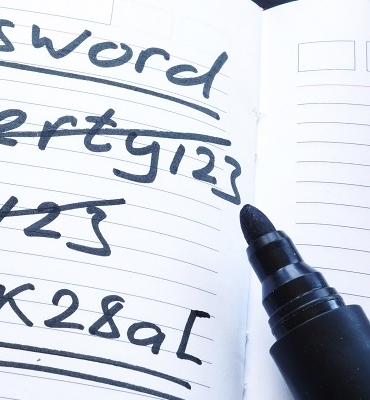 sword
erty123
123
K28a[